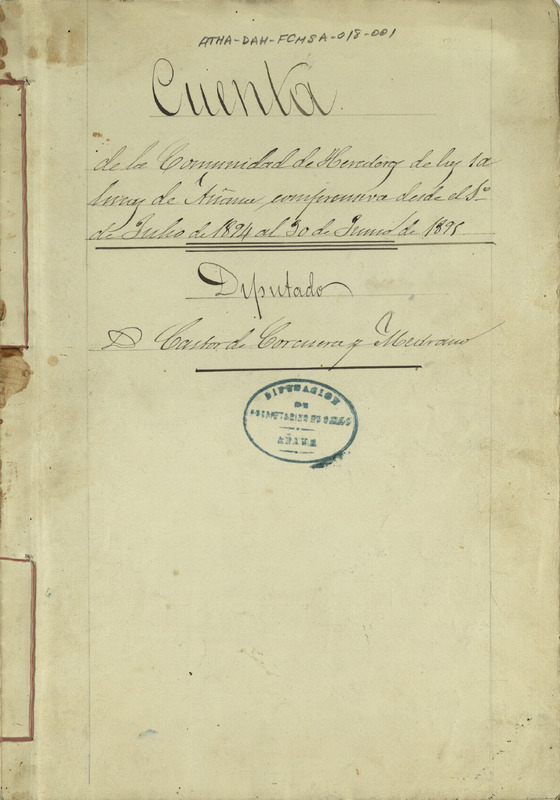 ATHA-DAH-FCMSA-018-001
Cuenta
de la Comunidad de Hereders de las sa
linas de Añana, comprensiva desde el 1º
de Julio de 1894 al 30 de Junio de 1895
Diputado
D Castor de Corcuera y Medrano
DIPUTACION
DE
AÑANA